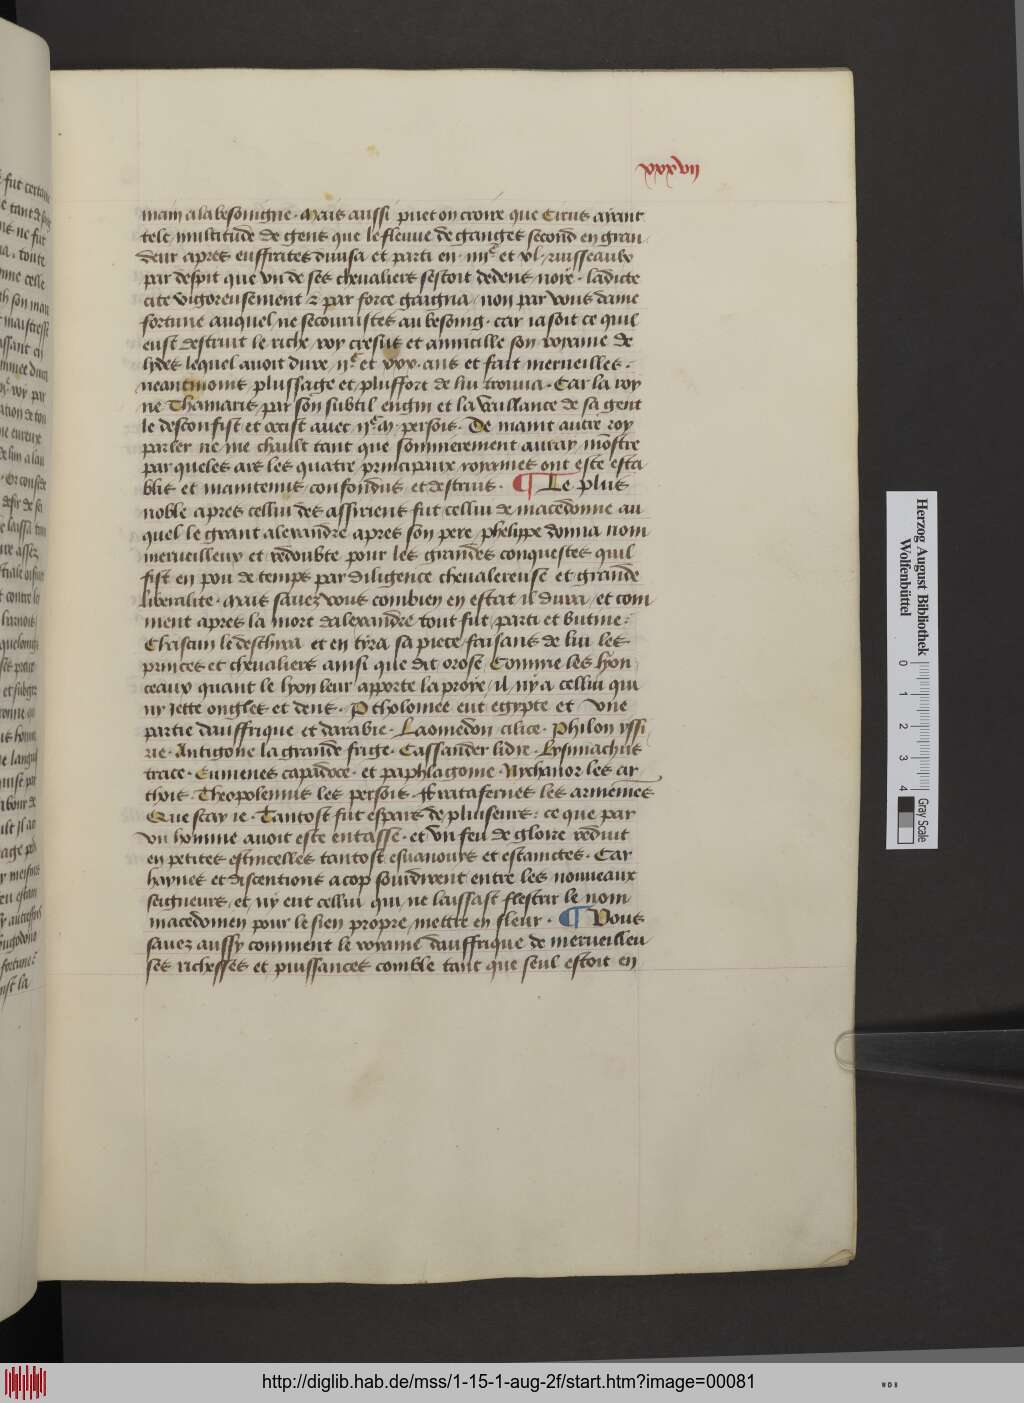 xxxvii
main a la besoingne · Mais aussi puet on croire que Cirus aiant
tele multitude de gens que le fleuue de ganges second en gran
deur apres euffrates diuisa et parti en · iiijc et lx · ruisseaulx
par despit que vn de ses cheualiers sestoit dedens noié · ladicte
cite vigoreusement et par force gaigna / non par vous dame
fortune auquel ne secourustes au besoing · car ia soit ce quil
eust destruit le riche roy cresus et adnicille son royame de
lydes lequel auoit dure / ijc et xxx · ans et fait merueilles :
neantmoins plussage et plusfort de lui trouua · Car la roy
ne Thamaris par son subtil engin et la vaillance de sa gent
le desconfist et occist auec ijcm persois · De maint autre roy
parler ne me chault tant que sommierement auray monstre
par queles ars les quatre principaux royames ont este esta
blis et maintenus confondus et destruis · ¶ Le plus
noble apres cellui des assiriens fut cellui de macedonne au
quel le grant alexandre apres son pere phelippe donna nom
merueilleux et redoubte pour les grandes conquestes quil
fist en pou de temps par diligence cheualereuse et grande
liberalite · Mais sauez vous combien en estat il dura / et com
ment apres la mort dalexandre tout fut parti et butine :
Chascun le deschira et en tyra sa piece faisans de lui les
princes et cheualiers ainsi que dit orose Comme les lyon
ceaux quant le lyon leur apporte la proye / il ny a cellui qui
ny iette ongles et dens · Ptholomee eut egypte et vne
partie dauffrique et darabie · Laomedon cilice · Philon yssi
rie · Antigone la grande frige · Cassander lidie · Lysimachus
trace · Eumenes capadoce · et paphlagonie · Nychanor les ar
thois · Theopolemus les persois · Fratafernes les armenies
Que scay ie · Tantost fut espars de pluiseurs : ce que par
vn homme auoit este entasse · et vn feu de gloire reduit
en petites estincelles tantost esuanouys et estainctes · Car
haynes et discentions a cop sourdirent entre les nouueaux
seigneurs · et ny eut cellui qui ne laissast flestrir le nom
macedonien pour le sien propre mettre en fleur · ¶ Vous
sauez aussy comment le royame dauffrique de merueilleu
ses richesses et puissances comble tant que seul estoit en
Herzog August Bibliothek
Wolfenbüttel
0 1 2 3 4
Gray Scale
http://diglib.hab.de/mss/1-15-1-aug-2f/start.htm?image=00081